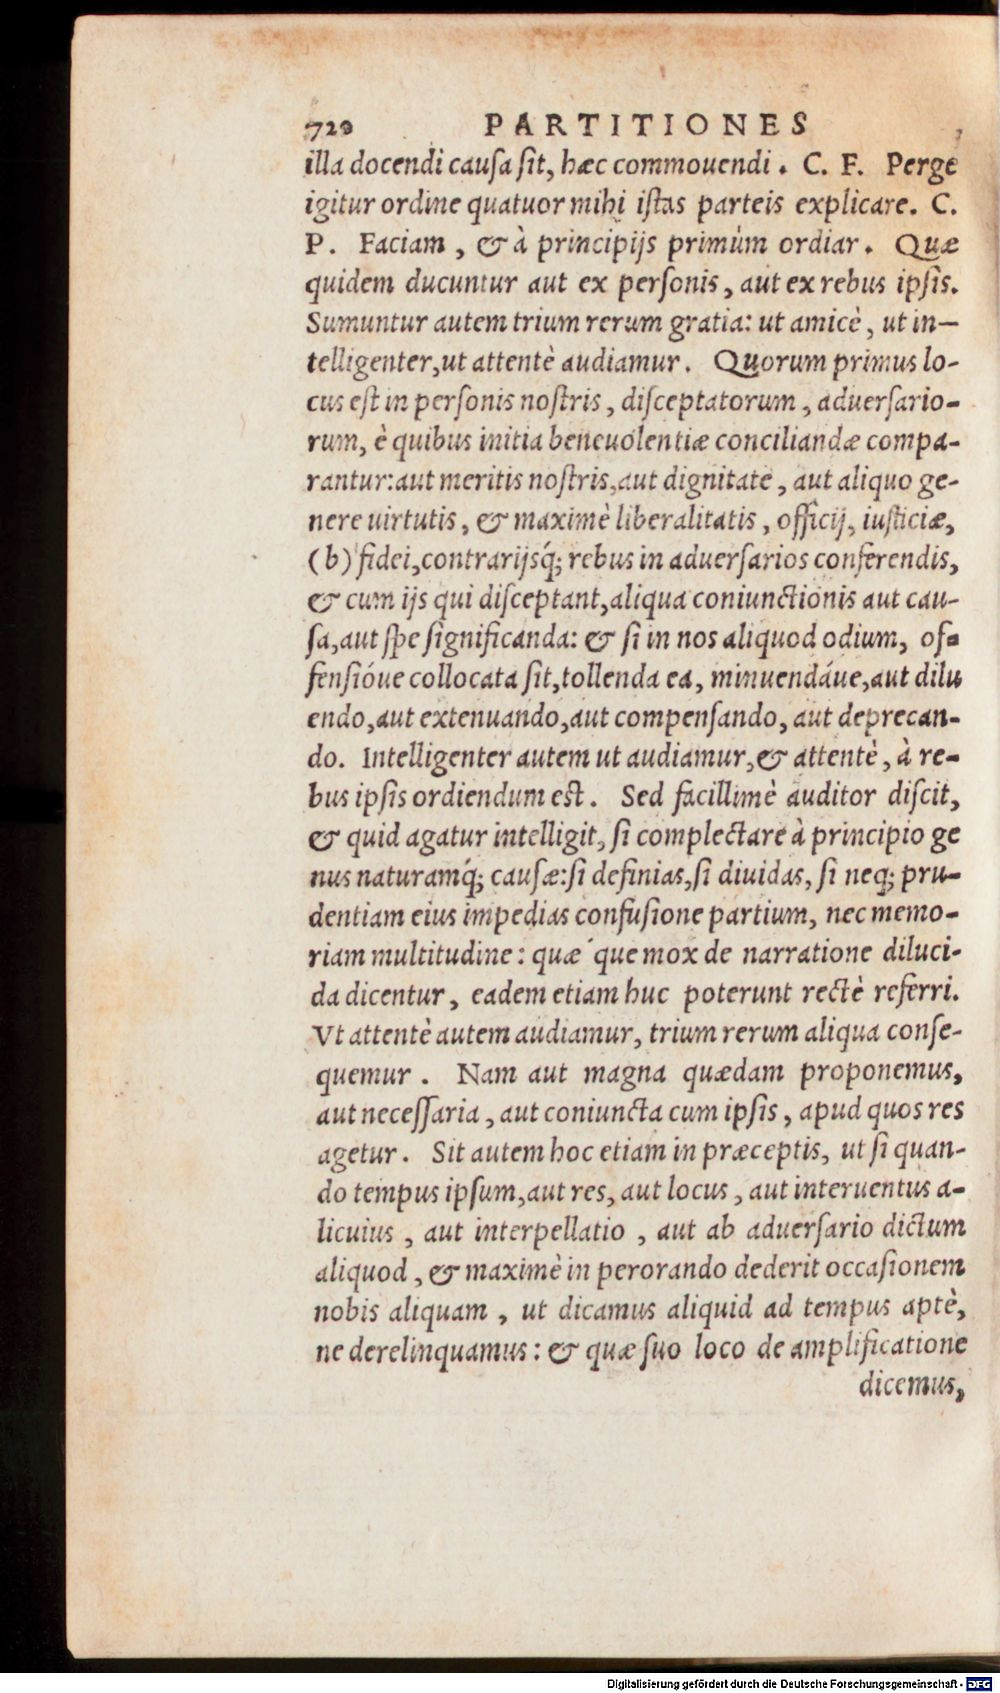 720 PARTITIONES
illa docendi cauſa ſit, hæc commouendi. C. F. Perge
igitur ordine quatuor mihi iſtas parteis explicare. C.
P. Faciam, & à principijs primùm ordiar. Quæ
quidem ducuntur aut ex perſonis, aut ex rebus ipſis.
Sumuntur autem trium rerum gratia: ut amicè, ut in-
telligenter, ut attentè audiamur. Quorum primus lo-
cus eſt in perſonis noſtris, diſceptatorum, aduerſario-
rum, è quibus initia beneuolentiæ conciliandæ compa-
rantur: aut meritis noſtris, aut dignitate, aut aliquo ge-
nere uirtutis, & maximè liberalitatis, officij, iuſticiæ,
(b) fidei, contrarijsq́; rebus in aduerſarios conferendis,
& cum ijs qui diſceptant, aliqua coniunctionis aut cau-
ſa, aut ſpe ſignificanda: & ſi in nos aliquod odium, of-
fenſióue collocata ſit, tollenda ea, minuendáue, aut dilu
endo, aut extenuando, aut compenſando, aut deprecan-
do. Intelligenter autem ut audiamur, & attentè, à re-
bus ipſis ordiendum eſt. Sed facillimè auditor diſcit,
& quid agatur intelligit, ſi complectare à principio ge
nus naturamq́; cauſæ: ſi definias, ſi diuidas, ſi neq; pru-
dentiam eius impedias confuſione partium, nec memo-
riam multitudine: quæ´que mox de narratione diluci-
da dicentur, eadem etiam huc poterunt rectè referri.
Vt attentè autem audiamur, trium rerum aliqua conſe-
quemur. Nam aut magna quædam proponemus,
aut neceſſaria, aut coniuncta cum ipſis, apud quos res
agetur. Sit autem hoc etiam in præceptis, ut ſi quan-
do tempus ipſum, aut res, aut locus, aut interuentus a-
licuius, aut interpellatio, aut ab aduerſario dictum
aliquod, & maximè in perorando dederit occaſionem
nobis aliquam, ut dicamus aliquid ad tempus aptè,
ne derelinquamus: & quæ ſuo loco de amplificatione
dicemus,
Digitalisierung gefördert durch die Deutsche Forschungsgemeinschaft - DFG